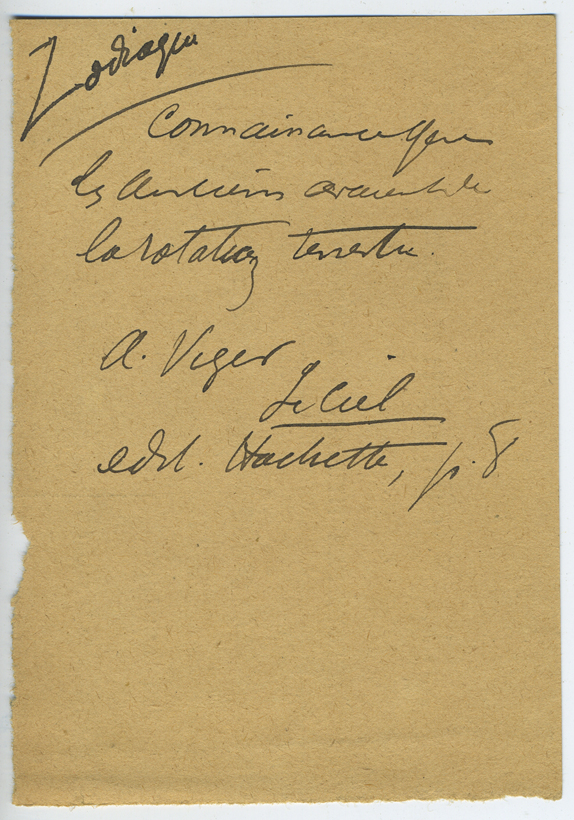 Zodiaque
Connaissance que
les Anciens avaient de
la rotation terrestre.
A. Viger
Le Ciel
edit. Hachette, p. 8